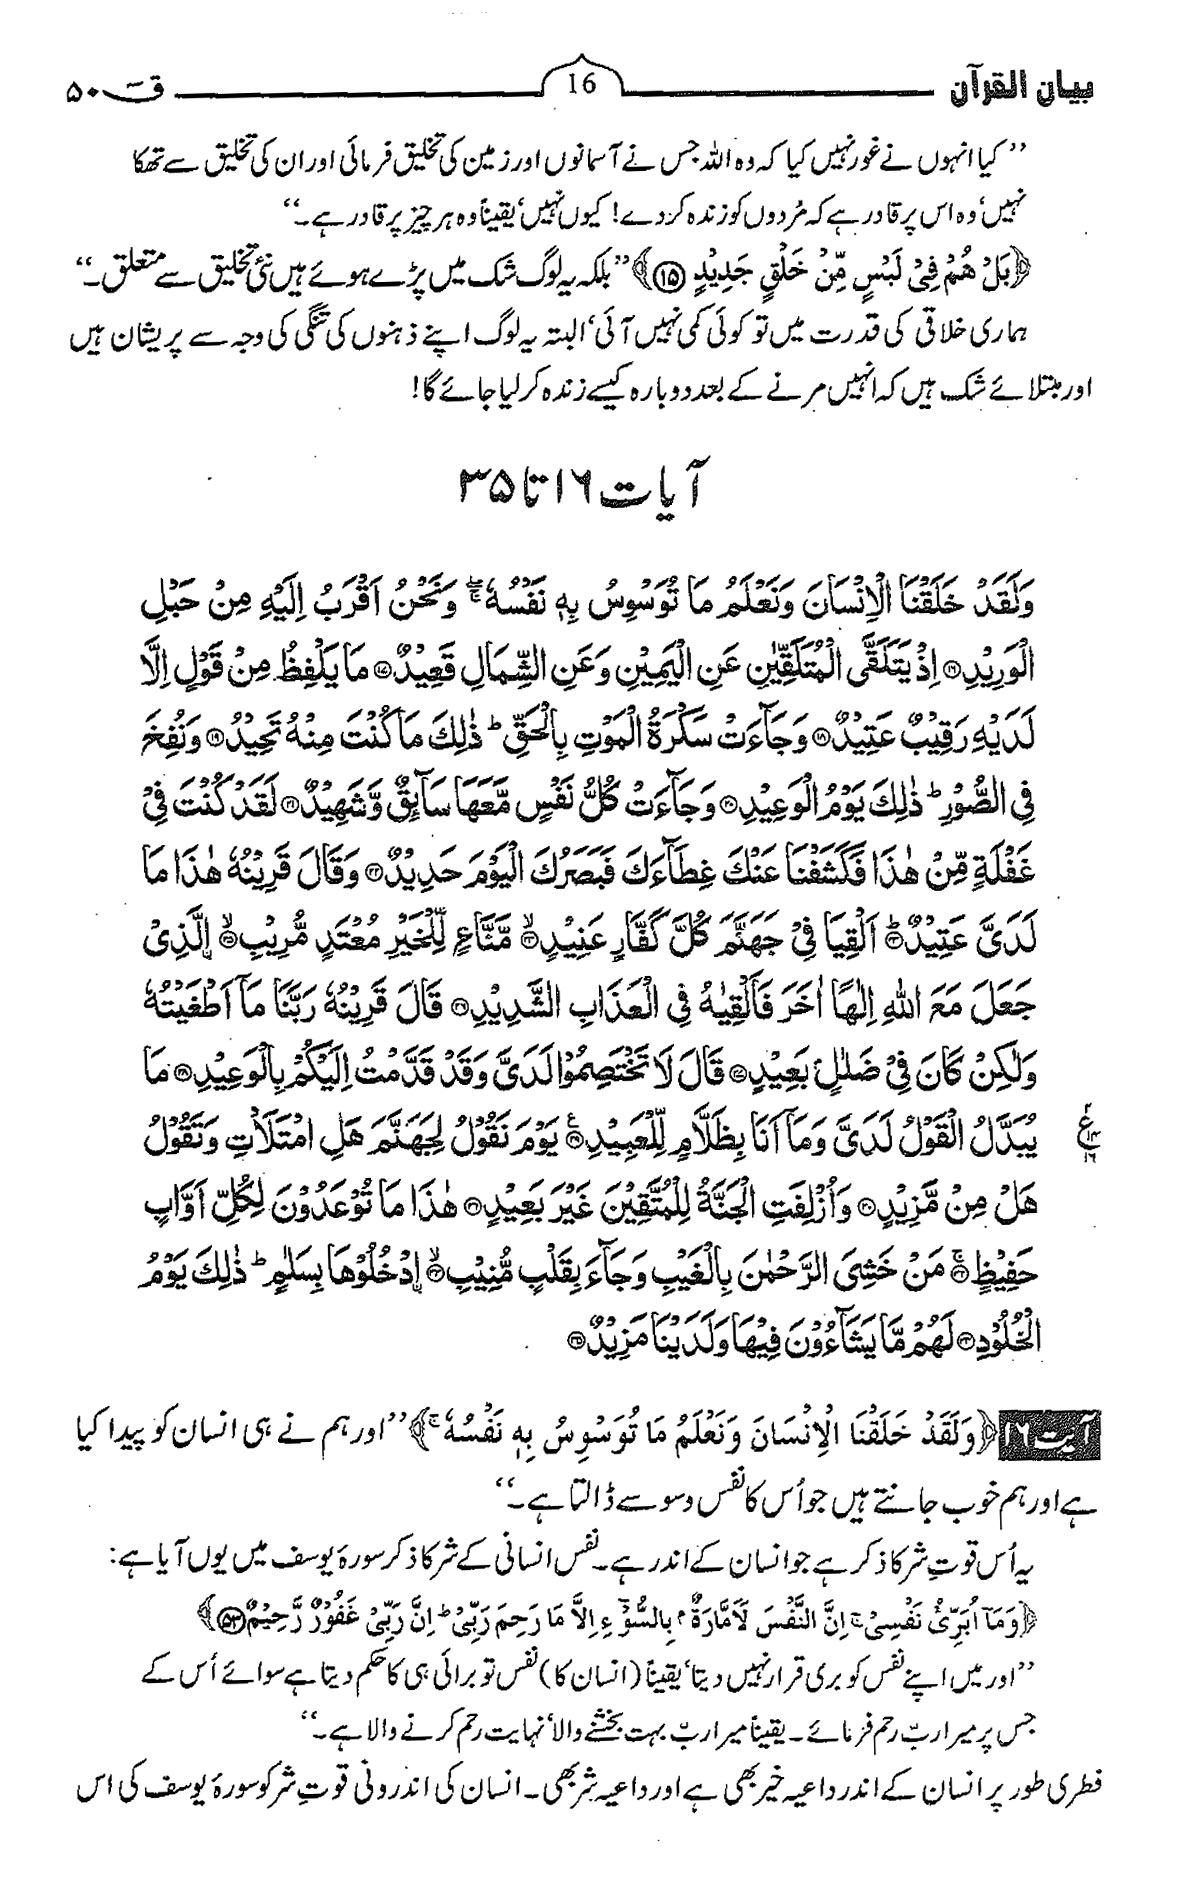 بیان القرآن 16 قٓ ۵۰
”کیا انہوں نے غور نہیں کیا کہ وہ اللہ جس نے آسمانوں اور زمین کی تخلیق فرمائی اور ان کی تخلیق سے تھکا
نہیں‘ وہ اس پر قادر ہے کہ مُردوں کو زندہ کر دے! کیوں نہیں‘ یقیناً وہ ہر چیز پر قادر ہے۔“
﴿بَلْ هُمْ فِیْ لَبْسٍ مِّنْ خَلْقٍ جَدِیْدٍ ﴿۱۵﴾﴾ ”بلکہ یہ لوگ شک میں پڑے ہوئے ہیں نئی تخلیق سے متعلق۔“
ہماری خلاقی کی قدرت میں تو کوئی کمی نہیں آئی‘ البتہ یہ لوگ اپنے ذہنوں کی تنگی کی وجہ سے پریشان ہیں
اور مبتلائے شک ہیں کہ انہیں مرنے کے بعد دوبارہ کیسے زندہ کر لیا جائے گا!
آیات ۱۶ تا ۳۵
وَلَقَدْ خَلَقْنَا الْاِنْسَانَ وَنَعْلَمُ مَا تُوَسْوِسُ بِهٖ نَفْسُهٗ ۖۚ وَنَحْنُ اَقْرَبُ اِلَیْهِ مِنْ حَبْلِ
الْوَرِیْدِ ﴿۱۶﴾ اِذْ یَتَلَقَّی الْمُتَلَقِّیٰنِ عَنِ الْیَمِیْنِ وَعَنِ الشِّمَالِ قَعِیْدٌ ﴿۱۷﴾ مَا یَلْفِظُ مِنْ قَوْلٍ اِلَّا
لَدَیْهِ رَقِیْبٌ عَتِیْدٌ ﴿۱۸﴾ وَجَآءَتْ سَكْرَةُ الْمَوْتِ بِالْحَقِّ ؕ ذٰلِكَ مَا كُنْتَ مِنْهُ تَحِیْدُ ﴿۱۹﴾ وَنُفِخَ
فِی الصُّوْرِ ؕ ذٰلِكَ یَوْمُ الْوَعِیْدِ ﴿۲۰﴾ وَجَآءَتْ كُلُّ نَفْسٍ مَّعَهَا سَآئِقٌ وَّشَهِیْدٌ ﴿۲۱﴾ لَقَدْ كُنْتَ فِیْ
غَفْلَةٍ مِّنْ هٰذَا فَكَشَفْنَا عَنْكَ غِطَآءَكَ فَبَصَرُكَ الْیَوْمَ حَدِیْدٌ ﴿۲۲﴾ وَقَالَ قَرِیْنُهٗ هٰذَا مَا
لَدَیَّ عَتِیْدٌ ؕ﴿۲۳﴾ اَلْقِیَا فِیْ جَهَنَّمَ كُلَّ كَفَّارٍ عَنِیْدٍ ۙ﴿۲۴﴾ مَّنَّاعٍ لِّلْخَیْرِ مُعْتَدٍ مُّرِیْبِ ۙ﴿۲۵﴾ اِلَّذِیْ
جَعَلَ مَعَ اللّٰهِ اِلٰهًا اٰخَرَ فَاَلْقِیٰهُ فِی الْعَذَابِ الشَّدِیْدِ ﴿۲۶﴾ قَالَ قَرِیْنُهٗ رَبَّنَا مَاۤ اَطْغَیْتُهٗ
وَلٰكِنْ كَانَ فِیْ ضَلٰلٍۢ بَعِیْدٍ ﴿۲۷﴾ قَالَ لَا تَخْتَصِمُوْا لَدَیَّ وَقَدْ قَدَّمْتُ اِلَیْكُمْ بِالْوَعِیْدِ ﴿۲۸﴾ مَا
یُبَدَّلُ الْقَوْلُ لَدَیَّ وَمَاۤ اَنَا بِظَلَّامٍ لِّلْعَبِیْدِ ﴿۲۹﴾ یَوْمَ نَقُوْلُ لِجَهَنَّمَ هَلِ امْتَلَاْتِ وَتَقُوْلُ
هَلْ مِنْ مَّزِیْدٍ ﴿۳۰﴾ وَاُزْلِفَتِ الْجَنَّةُ لِلْمُتَّقِیْنَ غَیْرَ بَعِیْدٍ ﴿۳۱﴾ هٰذَا مَا تُوْعَدُوْنَ لِكُلِّ اَوَّابٍ
حَفِیْظٍ ۚ﴿۳۲﴾ مَنْ خَشِیَ الرَّحْمٰنَ بِالْغَیْبِ وَجَآءَ بِقَلْبٍ مُّنِیْبِ ۙ﴿۳۳﴾ اِدْخُلُوْهَا بِسَلٰمٍ ؕ ذٰلِكَ یَوْمُ
الْخُلُوْدِ ﴿۳۴﴾ لَهُمْ مَّا یَشَآءُوْنَ فِیْهَا وَلَدَیْنَا مَزِیْدٌ ﴿۳۵﴾
آیت ۱۶ ﴿وَلَقَدْ خَلَقْنَا الْاِنْسَانَ وَنَعْلَمُ مَا تُوَسْوِسُ بِهٖ نَفْسُهٗ ۚ﴾ ”اور ہم نے ہی انسان کو پیدا کیا
ہے اور ہم خوب جانتے ہیں جو اُس کا نفس وسوسے ڈالتا ہے۔“
یہ اُس قوتِ شر کا ذکر ہے جو انسان کے اندر ہے۔ نفس انسانی کے شر کا ذکر سورۂ یوسف میں یوں آیا ہے:
﴿وَمَاۤ اُبَرِّئُ نَفْسِیْ ۚ اِنَّ النَّفْسَ لَاَمَّارَةٌۢ بِالسُّوْٓءِ اِلَّا مَا رَحِمَ رَبِّیْ ؕ اِنَّ رَبِّیْ غَفُوْرٌ رَّحِیْمٌ ﴿۵۳﴾﴾
”اور میں اپنے نفس کو بری قرار نہیں دیتا‘ یقیناً (انسان کا) نفس تو برائی ہی کا حکم دیتا ہے سوائے اُس کے
جس پر میرا ربّ رحم فرمائے۔ یقیناً میرا ربّ بہت بخشنے والا‘ نہایت رحم کرنے والا ہے۔“
فطری طور پر انسان کے اندر داعیہ خیر بھی ہے اور داعیہ شر بھی۔ انسان کی اندرونی قوتِ شر کو سورۂ یوسف کی اس